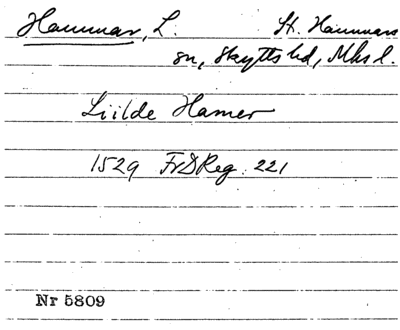 Hammar, L. St. Hammars
sn, Skytts hd, Mhs l.
Liilde Hamer
1529 FrDReg. 221
Nr 5809